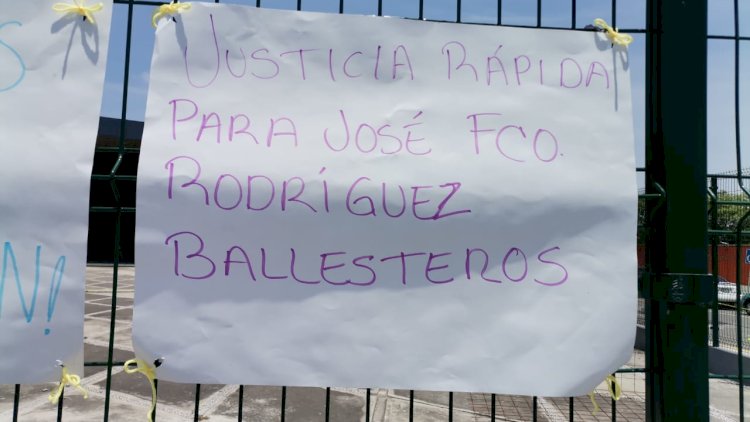 JUSTICIA RÁPIDA
PARA JOSÉ FCO.
RODRÍGUEZ
BALLESTEROS
S
N!